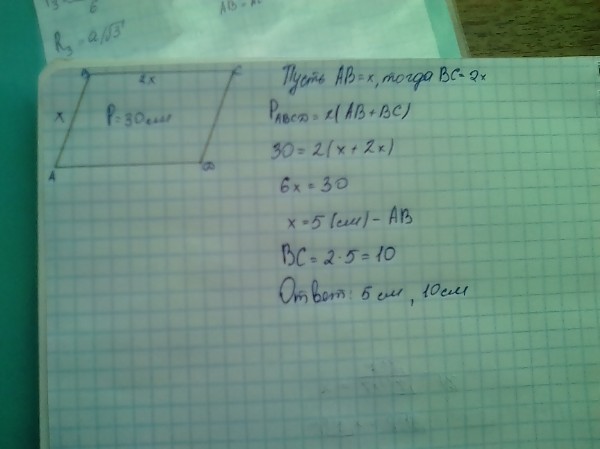 6
AB = A
R₃ = a/√3
B
C
2x
x
P = 30 см
A
D
Пусть AB = x, тогда BC = 2x
P ABCD = 2(AB + BC)
30 = 2(x + 2x)
6x = 30
x = 5 (см) - AB
BC = 2 · 5 = 10
Ответ: 5 см, 10 см